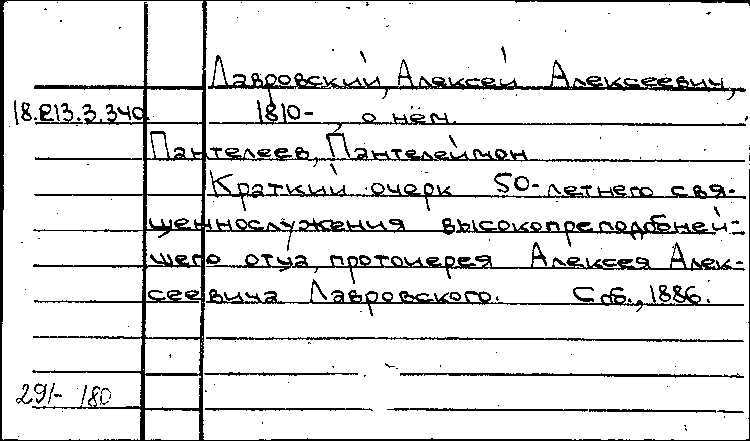 Лавровский, Алексей Алексеевич,
18.213.3.340. 1810- , о нем.
Пантелеев, Пантелеймон
Краткий очерк 50-летнего свя-
щеннослужения высокопреподобней-
шего отца протоиерея Алексея Алек-
сеевича Лавровского. Спб., 1886.
291- 180